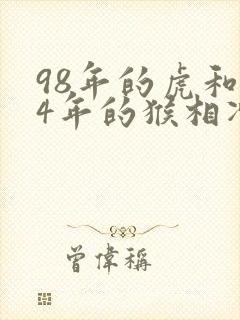 98年的虎和
4年的猴相冲
曾偉稱